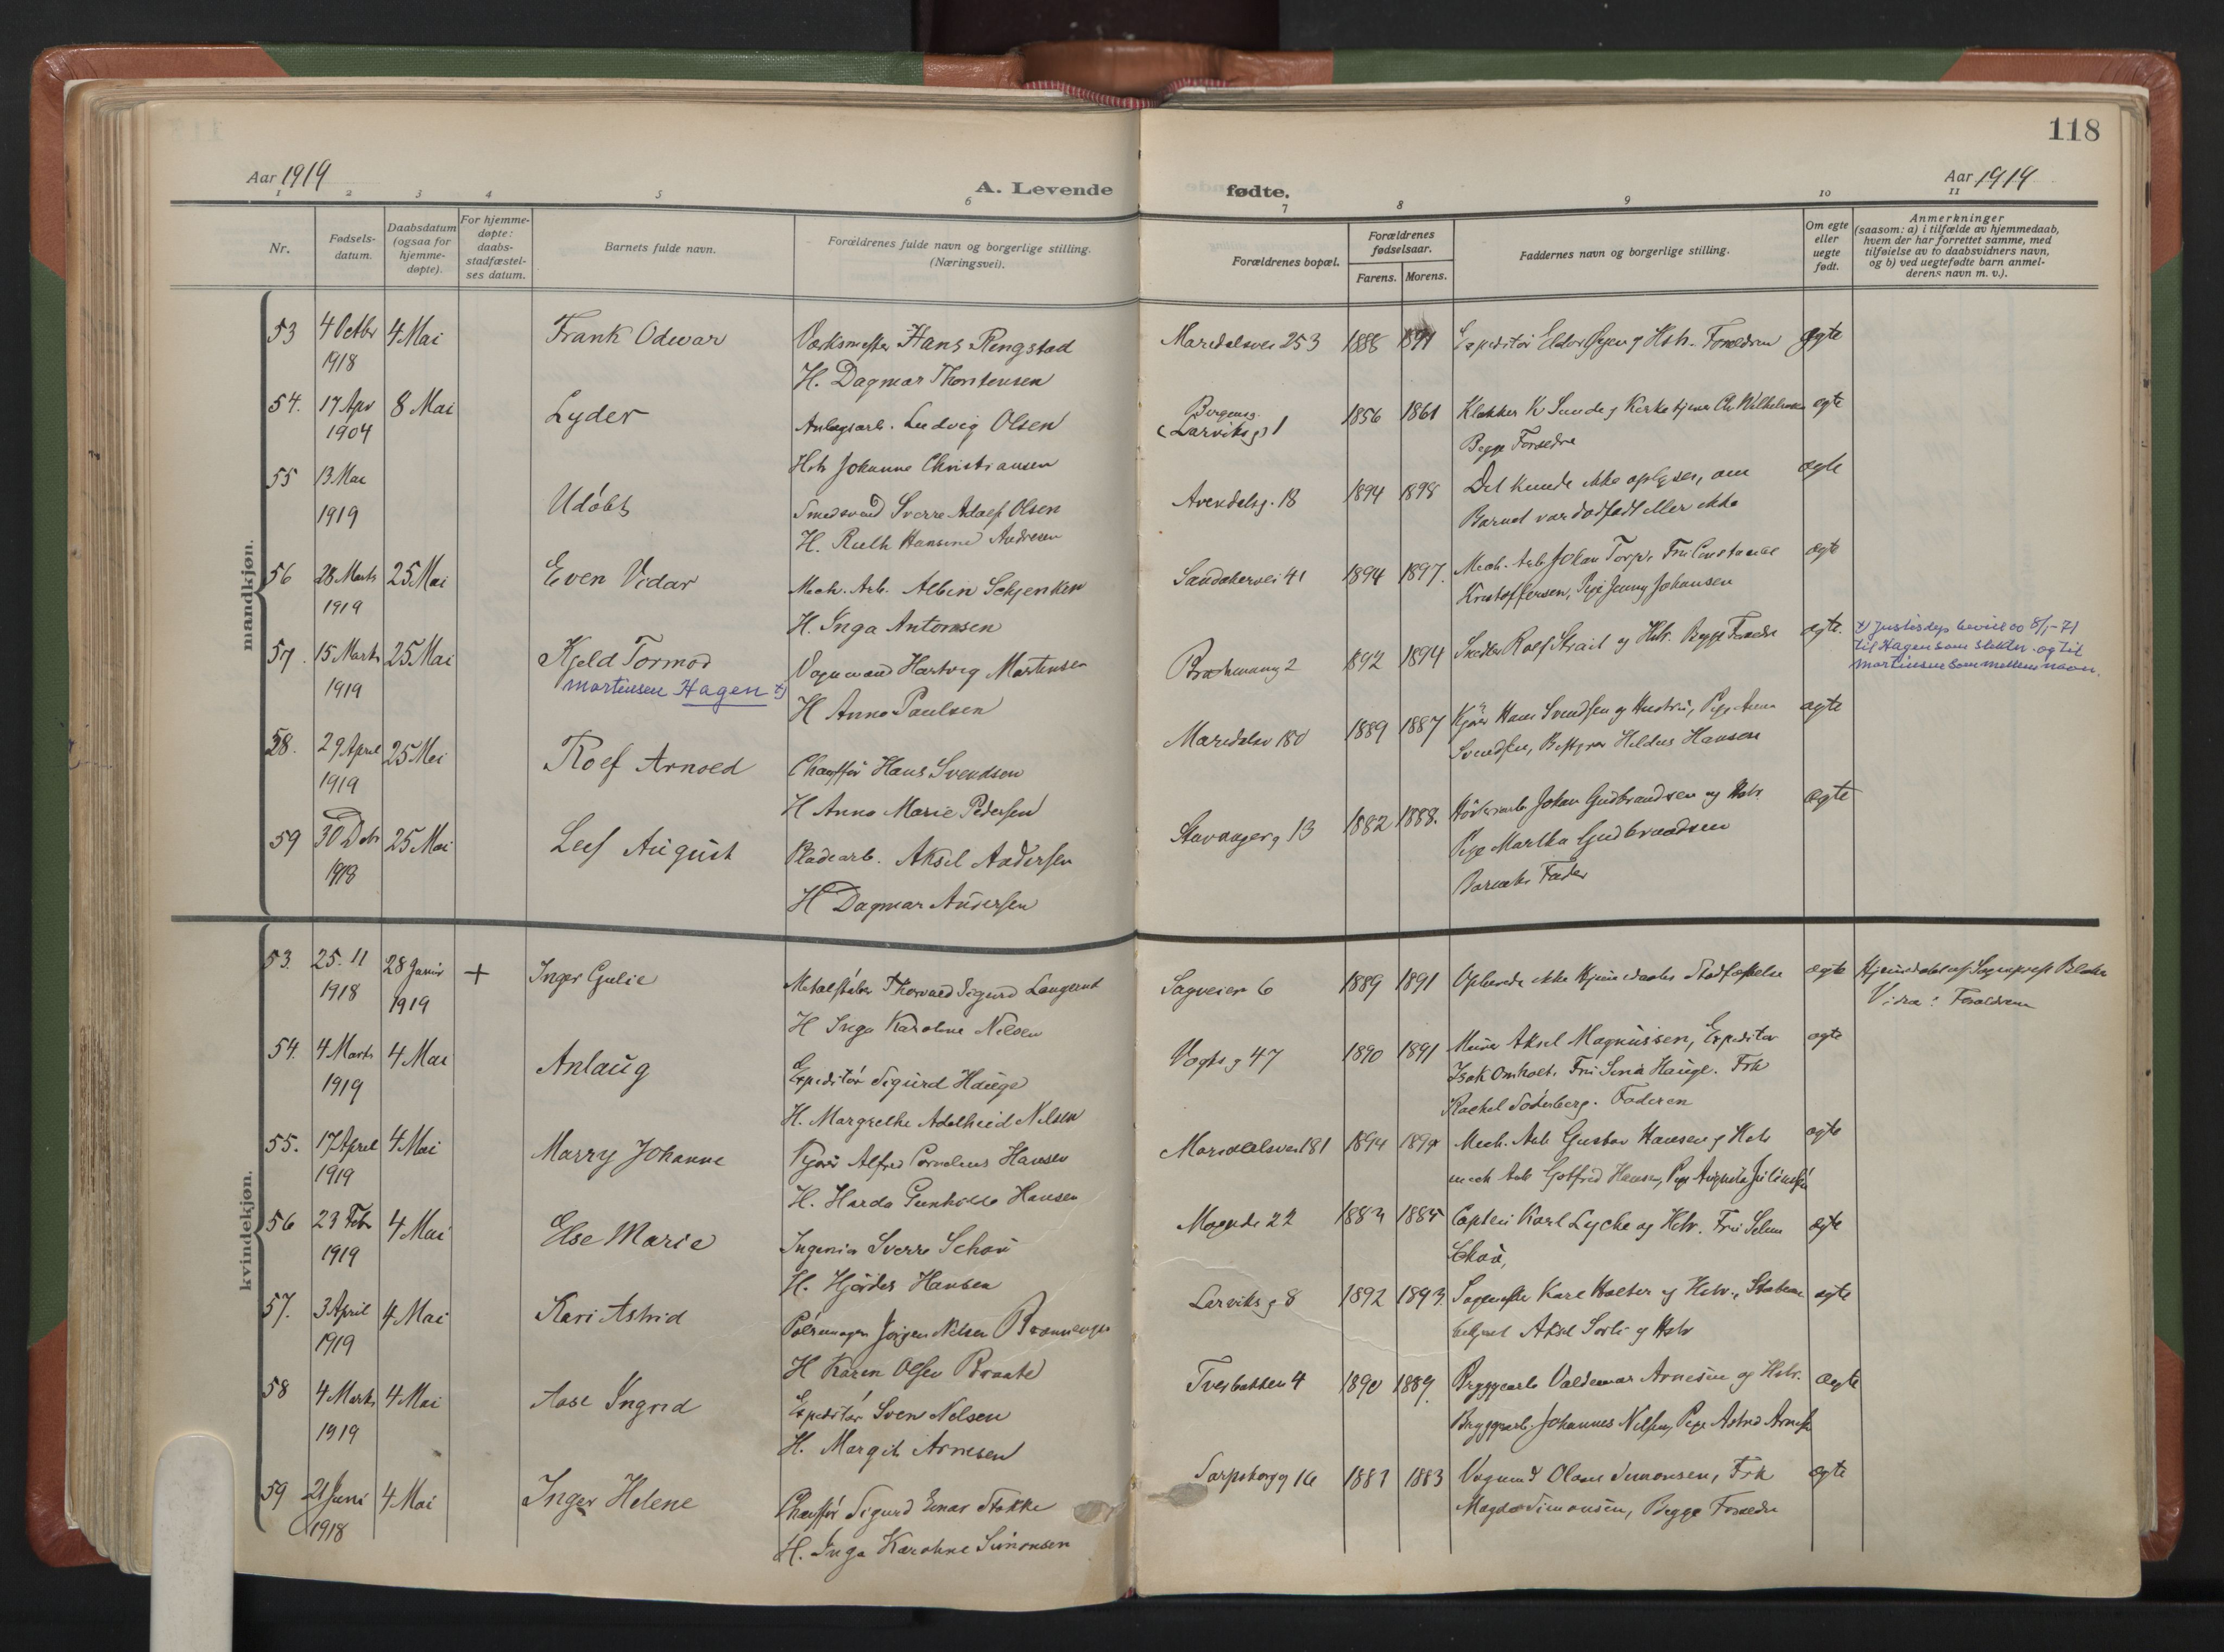 118
Aar 1919
A. Levende fødte.
Aar 1919
1 2 3 4 5 6 7 8 9 10 11
Nr.
Fødsels-
datum.
Daabsdatum
(ogsaa for
hjemme-
døpte).
For hjemme-
døpte:
daabs-
stadfæstel-
ses datum.
Barnets fulde navn.
Forældrenes fulde navn og borgerlige stilling.
(Næringsvei).
Forældrenes bopæl.
Forældrenes
fødselsaar.
Farens. Morens.
Faddernes navn og borgerlige stilling.
Om egte
eller
uegte
født.
Anmerkninger
(saasom: a) i tilfælde av hjemmedaab,
hvem der har forrettet samme, med
tilføielse av to daabsvidners navn,
og b) ved uegtefødte barn anmel-
derens navn m. v.).
mandkjøn.
53 4 Octbr 4 Mai Frank Odvar Værksmester Hans Ringstad Maridalsvei 253 1888 1891 Expeditør Forældrene ægte
1918 H. Dagmar Thorstensen
54. 17 Apr 8 Mai Lyder Anlægsarb. Ludvig Olsen Bergensg. (Larviksg) 1 1856 1861 Klokker K Sunde og Kirketjener Chr Wilhelmsen egte
1904 Hstr Johanne Christiansen Begge Forældre
55 13 Mai Udøbt Smedsvend Sverre Adolf Olsen Arendalsg. 18 1894 1898 Det kunde ikke oplyses, om ægte
1919 H. Ruth Hansine Andresen Barnet var dødfødt eller ikke
56 28 Marts 25 Mai Even Vidar Mech. Arb. Albin Schjenken Sandakervei 41 1894 1897. Mech. Arb Johan Torp, Fru Constance ægte
1919 H. Inga Antonsen Kristoffersen, Pige Jenny Johansen
57. 15 Marts 25 Mai Kjeld Tormod Vognmand Hartvig Martinsen 2 1892 1894 Rolf Strait og Hstr. Begge Forældre ægte. x) Justisdep bevill av 8/1-71
1919 Martinsen Hagen x) H Anna Paulsen til Hagen som slektn. og til
Martinsen som mellemnavn.
58. 29 April 25 Mai Rolf Arnold Chauffør Hans Svendsen Maridalsv 180 1889 1887 Kjører Hans Svendsen og Hustru, Pige Anna ægte
1919 H Anna Marie Pedersen Svendsen, Hildus Hansen
59 30 Dcbr 25 Mai Leif August Pladearb. Aksel Andersen Stavangerg 13 1882 1888. Johan Gudbrandsen og Hstr. ægte
1918 H Dagmar Andersen Pige Martha Gudbrandsen
Barnets Fader
kvindekjøn.
53. 25. 11 28 Januar + Inger Gulie Metalstøber Thorvald Sigurd Sagveien 6 1889 1891 ikke Hjemmedaabs Stadfæstelse ægte Hjemmedøbt af Sogneprest
1918 1919 H Inga Karoline Nilsen Vidne: Forældrene
54. 4 Marts 4 Mai Anlaug Expeditør Sigurd Hauge Vogtsg 47 1890 1891 Murer Aksel Magnussen, Expeditør ægte
1919 H. Margrethe Adelheid Nilsen Isak Omholt, Fru Hauge. Frk
Rachel Söderberg. Faderen
55. 17 April 4 Mai Marry Johanne Kjører Alfred Cornelius Hansen Maridalsvei 181 1894 Mech. Arb Gustav Hansen og Hstr ægte
1919 H. Gunhilda Hansen mech Arb Gotfred Hansen, Pige Augusta
56 23 Febr 4 Mai Else Marie Ingeniør Sverre Schou 22 1885 Captein Karl Lyche og Hstr. Fru ægte
1919 H. Hjørdis Hansen Schou,
57. 3 April 4 Mai Kari Astrid Pølsemager Jørgen Nilsen Larviksg 8 1892 1893. Karl Holter og Hstr., ægte
1919 H Karen Olsen Braate Aksel Sørli og Hstr
58 4 Marts 4 Mai Aase Ingrid Expeditør Sven Nilsen Tverbakken 4 1890 1889. Bryggearb Valdemar Arnesen og Hstr. ægte
1919 H. Margit Arnesen Bryggearb Johannes Nilsen, Pige Astrid Arnesen
59 21 Juni 4 Mai Inger Helene Chauffør Sigurd Einar Stokke Sarpsborgg 16 1883 Vognmd Olaus Simonsen, Frk ægte
1918 H. Inga Karoline Simonsen Magda Simonsen, Begge Forældre